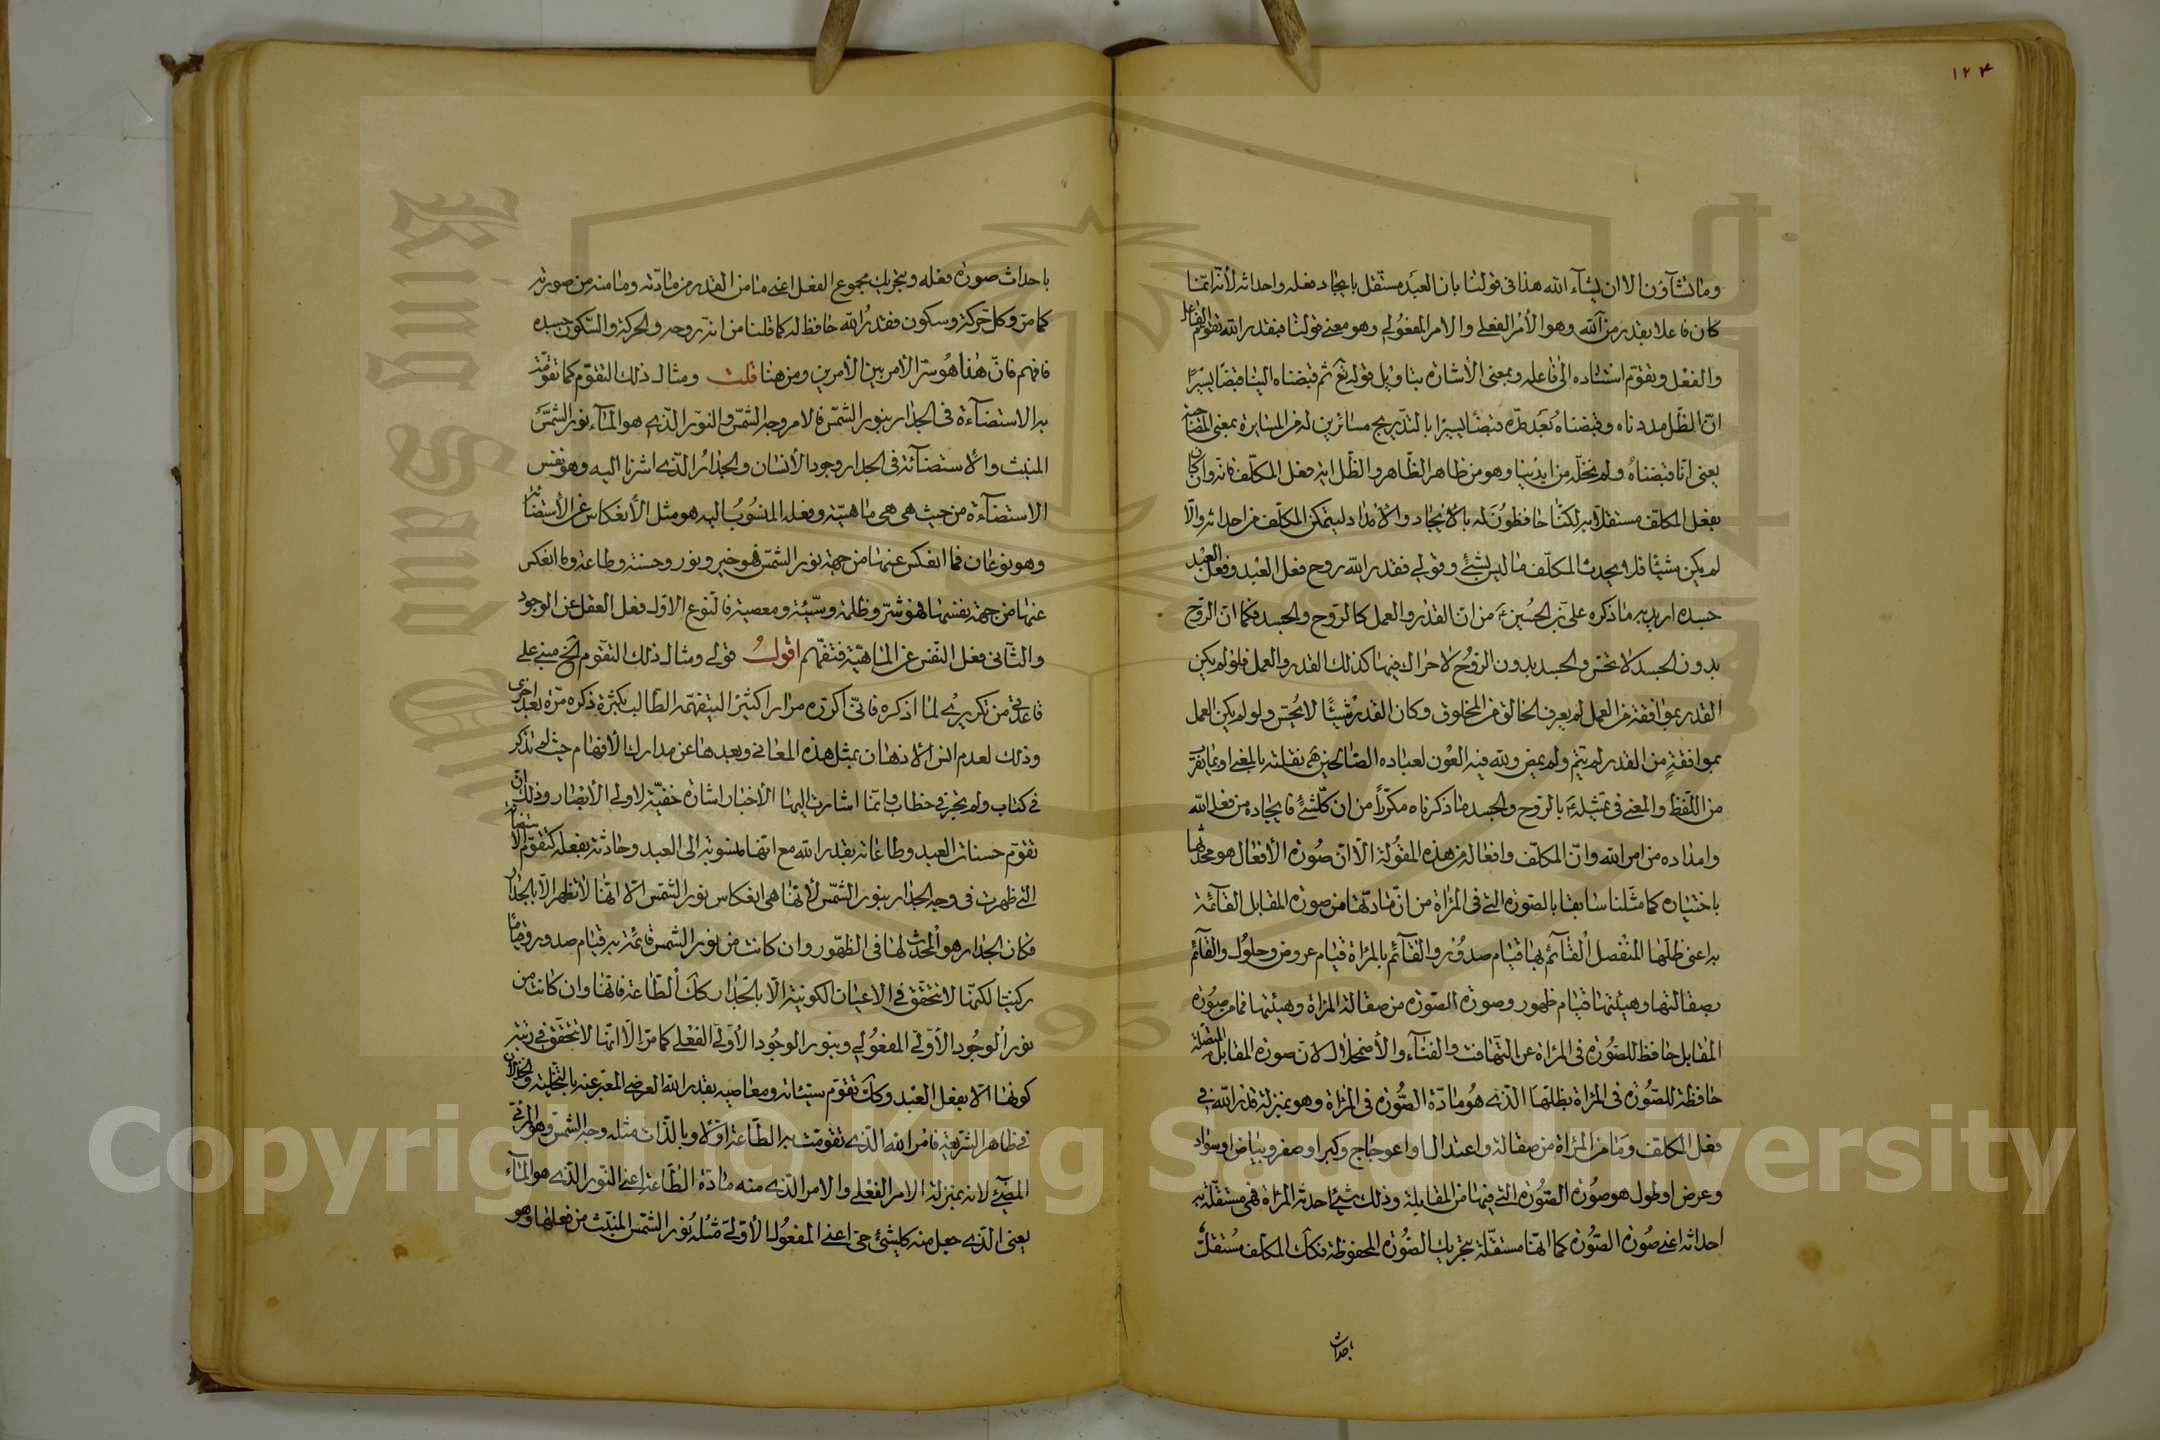 ١٢۴
وما تشآؤن الا ان يشآء الله هذا فى قولنا بان العبد مستقل بايجاد فعله واحداثه لأنه انما
كان فاعلا بقدر من الله وهو الأمر الفعلى والامر المفعولي وهو معنى قولنا فبقدر الله تقوم الفاعل
والفعل وبتقوم استناده الى فاعله وبمعنى الأشارة بتاويل قوله تع ثم قبضناه الينا قبضا يسيرا
ان الظل مددناه وقبضناه بعد مده قبضا يسيرا بالتدريج
يعنى انا قبضناه ولم نخله من ايدينا وهو من ظاهر الظاهر والظل اية فعل المكلف فانه وان كان
بفعل المكلف مستقلا به لكنا حافظون له بالايجاد والامداد ليتمكن المكلف من احداثه والا
لم يكن شيئا فلا يحدث المكلف ما ليس بشئ وقولي فقدر الله روح فعل العبد وفعل العبد
جسده اريد به ما ذكره على بن الحسين ع من ان القدر والعمل كالروح والجسد فكما ان الروح
بدون الجسد لا تحس والجسد بدون الروح لا حراك فيها كذلك القدر والعمل فلو لم يكن
القدر بموافقة من العمل لم يعرف الخالق من المخلوق وكان القدر شيئا لا يحس ولو لم يكن العمل
بموافقة من القدر لم يتم ولم يمض ولله فيه العون لعباده الصالحين هى نقلته بالمعنى
من اللفظ والمعنى فى تمثيله ع بالروح والجسد ما ذكرناه مكررا من ان كل شئ فايجاده من فعل الله
وامداده من امر الله وان المكلف وافعاله من هذه المقولة الا ان صورة الأفعال هو محدثها
باختياره كما مثلنا سابقا بالصورة التى فى المرٰاة من ان مادتها من صورة المقابل القائمة
به اعنى ظلها المنفصل القائم بها قيام صدور والقائم بالمرٰاة قيام عروض وحلول والقائم
بصقالتها وهيئتها قيام ظهور وصورة الصورة من صقالة المرٰاة وهيئتها فما من صورة
المقابل حافظ للصورة فى المرٰاة عن التهافت والفنآء والأضمحلال لان صورة المقابل المتصلة
حافظة للصورة فى المرٰاة بظلها الذى هو مادة الصورة فى المرٰاة وهو بمنزلة قدر الله فى
فعل المكلف وما من المرٰاة من صقالة واعتدال او اعوجاج وكبر او صغر وبياض او سواد
وعرض او طول هو صورة الصورة التى فيها من المقابلة وذلك شئ احدثه المرٰاة فهى مستقلة به
احداثه اعنى صورة الصورة كما انها مستقلة بتحريك الصورة المحفوظة فكك المكلف مستقل
باحداث
باحداث صورة فعله وبتحريك مجموع الفعل اعنى ما من القدر من مادته وما منه من صورته
كما مر وكل حركة وسكون فقدر الله حافظ له كما قلنا من انه روحه والحركة والسكون جسده
فافهم فان هذا هو سر الأمر بين الأمرين ومن هنا قلت ومثال ذلك التقوم كما تقومت
به الاستضآءة فى الجدار بنور الشمس فالامر وجه الشمس والنور الذى هو المآء نور الشمس
المنبث والاستضآئة فى الجدار وجود الأنسان والجدار الذى اشرنا اليه وهو نفس
الاستضآءة من حيث هى هى ماهية وفعله المنسوب اليه هو مثل الأنعكاس عن الأستضائة
وهو نوعان فما انعكس عنها من جهة نور الشمس فهو خير ونور وحسنة وطاعة وما انعكس
عنها من جهة نفسها فهو شر وظلمة وسيئة ومعصية فالنوع الاول فعل العقل عن الوجود
والثانى فعل النفس عن الماهية فتفهم اقول قولى ومثال ذلك التقوم الخ مبنى على
قاعدتى من تكريرى لما اذكره فانى اكرره مرارا كثيرا ليتفهمه الطالب بكثرة ذكره مرة بعد اخرى
وذلك لعدم انس الاذهان بمثل هذه المعانى وبعدها عن مدارك الافهام حيث لم تذكر
فى كتاب ولم تجر فى خطاب وانما اشارت اليها الأخبار اشارة خفية لاولى الأبصار وذلك ان
تقوم حسنات العبد وطاعاته بقدر الله مع انها منسوبة الى العبد وحادثة بفعله كتقوم الاستضائة
التى ظهرت فى وجه الجدار بنور الشمس لأنها هى انعكاس نور الشمس الا انها لا تظهر الا بالجدار
فكان الجدار هو المحدث لها فى الظهور وان كانت من نور الشمس قائمة به قيام صدور وقياما
ركنيا لكنها لا تتحقق فى الاعيان الكونية الا بالجدار كك الطاعة فانها وان كانت من
نور الوجود الأولى المفعولى وبنور الوجود الأولى الفعلى كما مر الا انها لا تتحقق فى رتبة
كونها الا بفعل العبد وكك تقوم سيئاته ومعاصيه بقدر الله العرضى المعبر عنه بالتخلية والخذلان
فى ظاهر الشريعة فامر الله الذى تقومت به الطاعة اولا وبالذات مثله وجه الشمس وهو المرئى
المضيئ لانه بمنزلة الامر الفعلى والامر الذى منه مادة الطاعة اعنى النور الذى هو المآء
يعنى الذى جعل منه كل شئ حى اعنى المفعول الأولى مثله نور الشمس المنبث من فعلها وهو